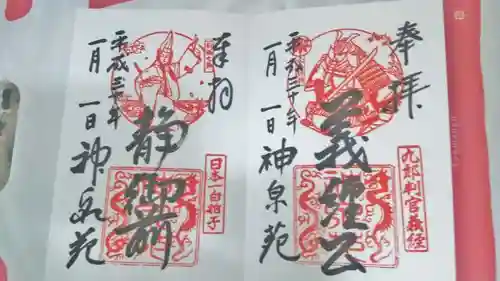 奉拝
九郎判官義経
義経公
平成三十年
一月 一日 神泉苑
奉拝
日本一白拍子
静御前
平成三十年
一月 一日 神泉苑